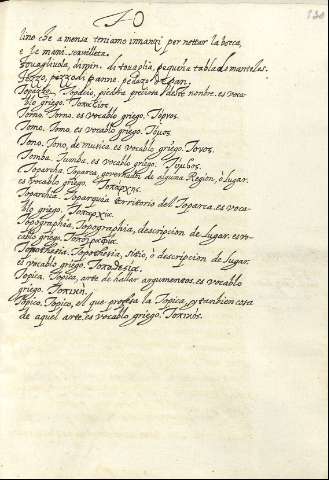 TO
lino che a mensa teniamo innanzi per nettar la bocca,
e le mani. servilleta.
Tovagliuola, dimin. di tovaglia, pequeña tabla de manteles.
Tozzo, pezzo di panne. pedazo de pan.
Topazio. Topacio, piedra preciosa deste nonbre. es voca-
blo griego. Τοπαζιος.
Torno. Torno. es vocablo griego. Τόρνος.
Tomo. Tomo. es vocablo griego. Τόμος.
Tono. Tono, de musica. es vocablo griego. Τονος.
Tomba. Tumba. es vocablo griego. Τύμβος.
Toparcha. Toparca, governador de alguna Region, ò lugar.
es vocablo griego. Τοπαρχης.
Toparchia. Toparquia territorio del Toparca. es voca-
blo griego. Τοπαρχια.
Topographia. Topographia, descripcion de lugar. es vo-
cablo griego. Τοπογραφια.
Topothesia. Topothesia, sitio, ò descripcion de lugar.
es vocablo griego. Τοποθεσια.
Topica. Topica, arte de hallar argumentos. es vocablo
griego. Τοπικη.
Topico. Topico, el que profesa la Topica, y tanbien cosa
de aquel arte. es vocablo griego. Τοπικός.